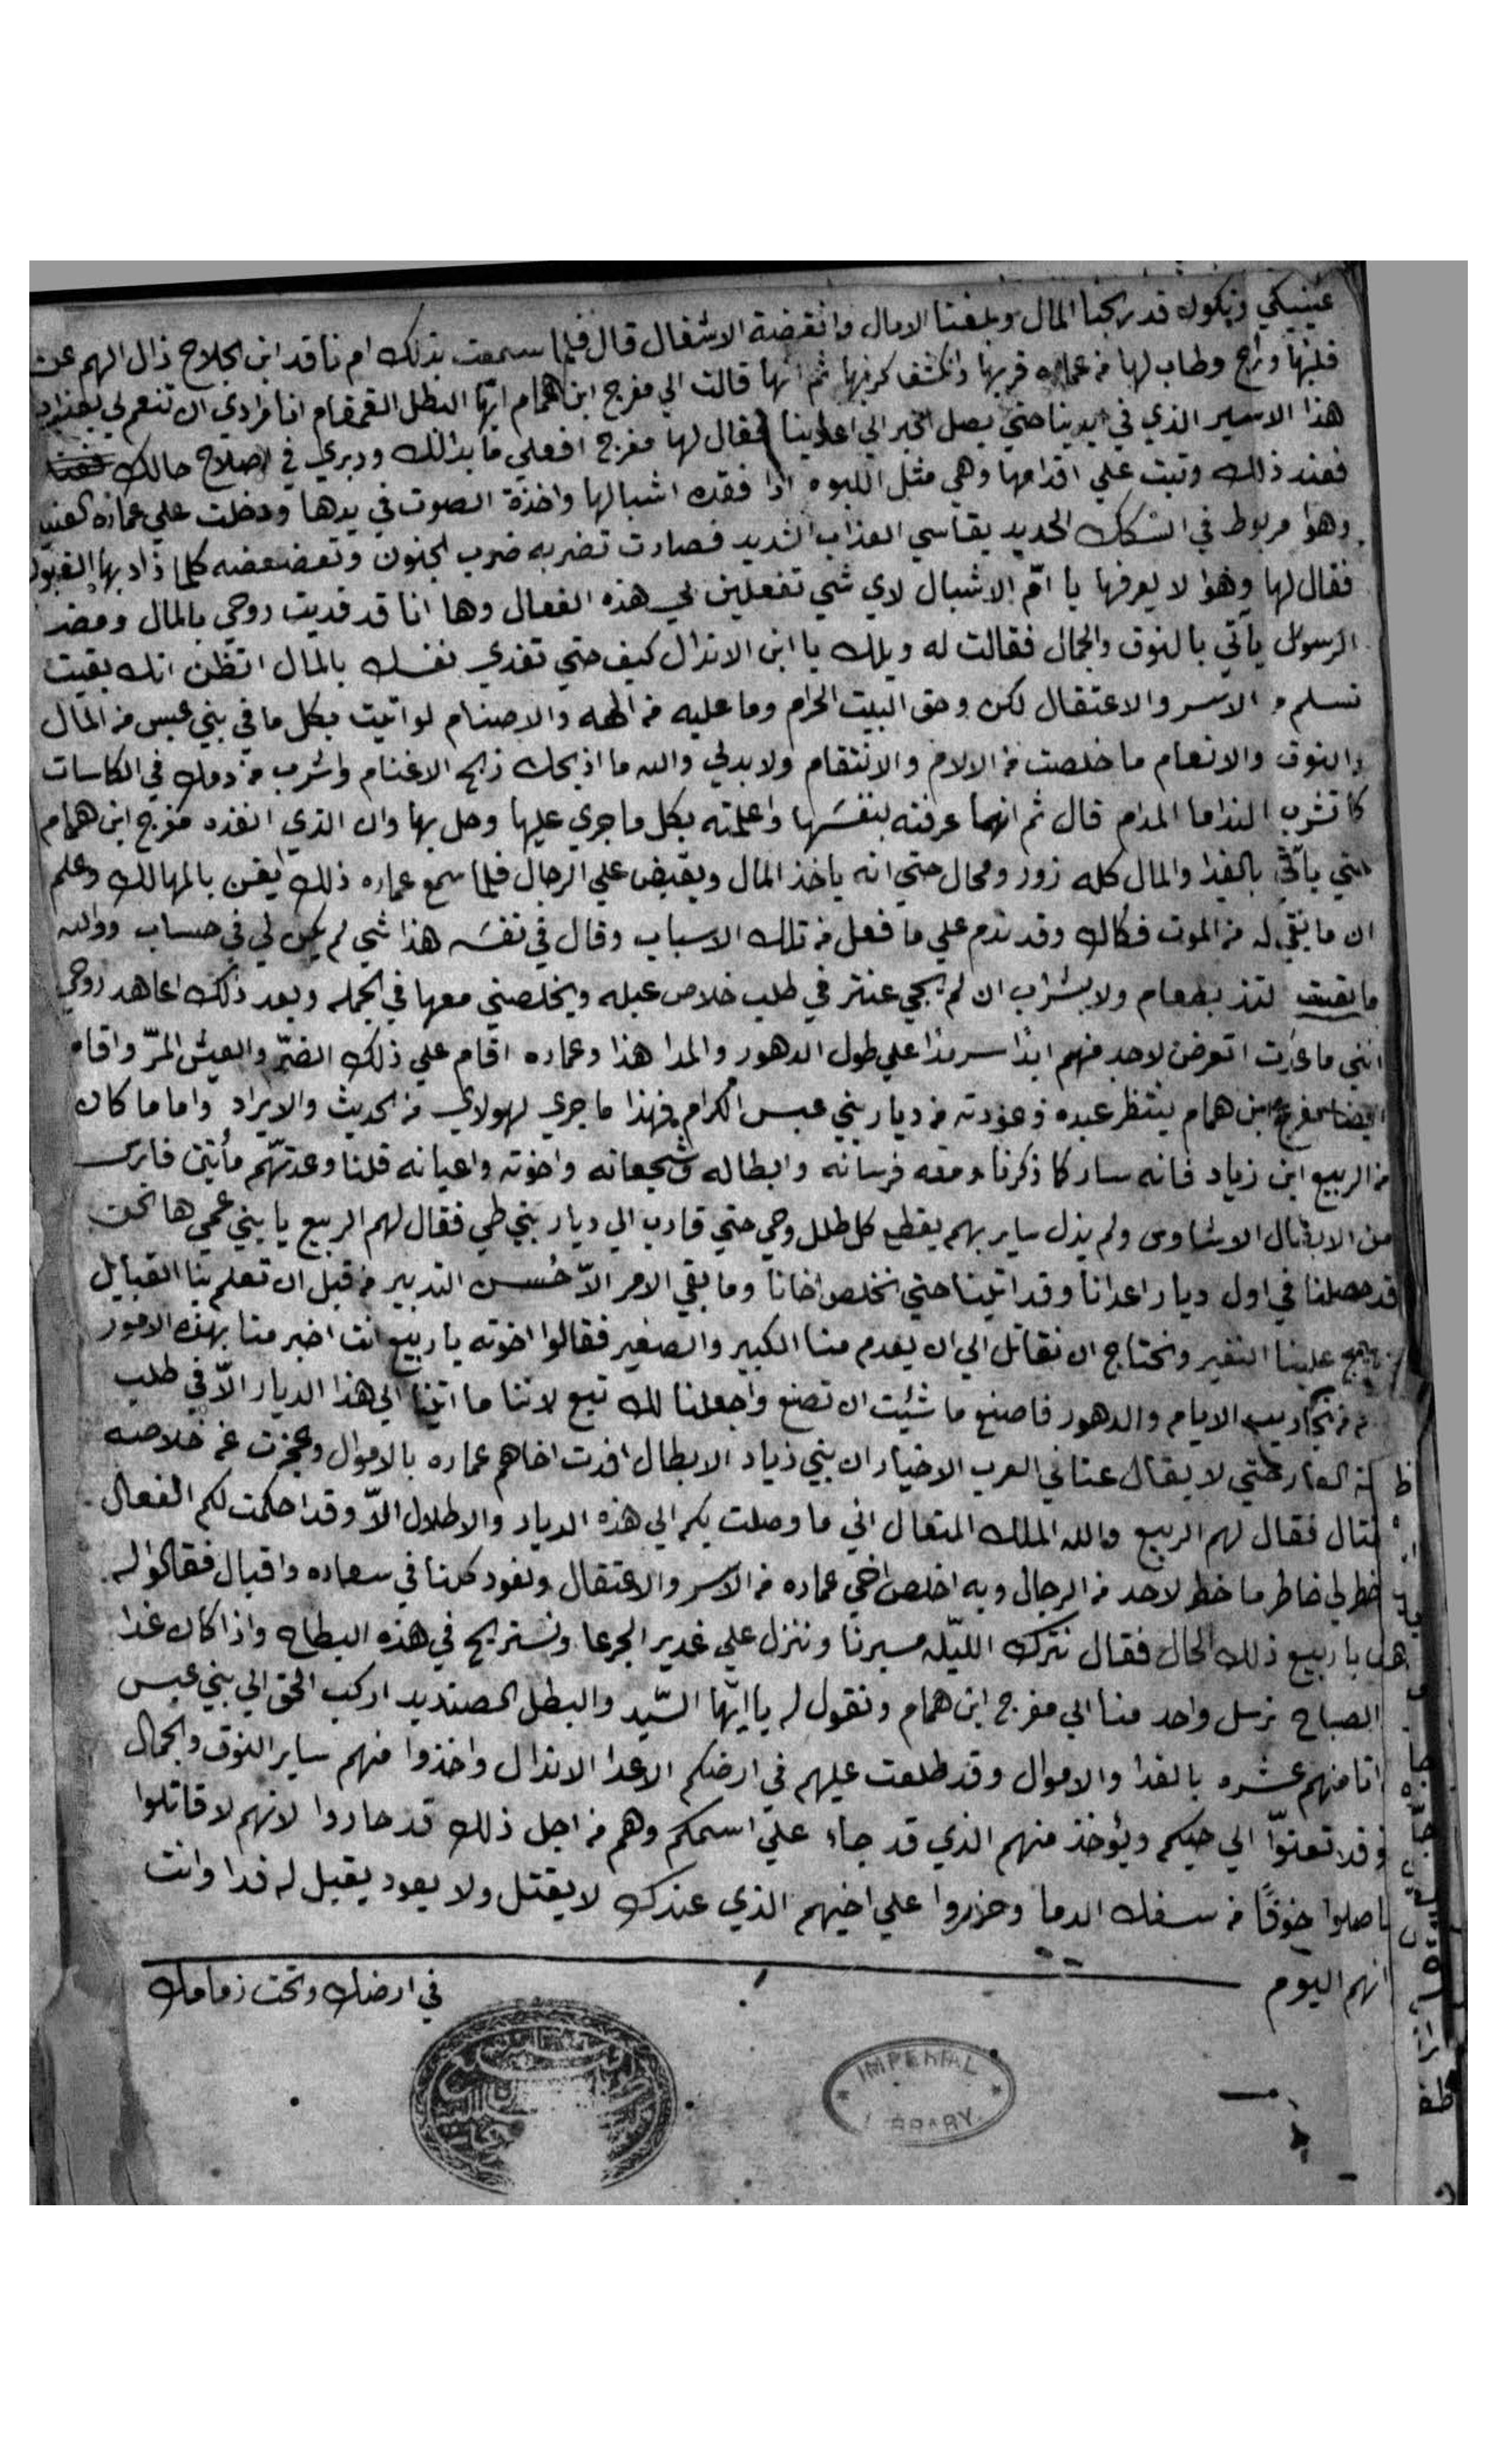 عينيكي ونكون قد ربحنا المال وبلغنا الامال وانقرضة الاشغال قال فلما سمعت بذلك ام ناقد ابن الجلاح زال الهم عن
قلبها وراح وطاب لها من عماره قربها وانكشف كربها ثم انها قالت الي مفرج ابن همام ايها البطل القمقام انا مرادي ان تنعم لي بعذاب
هذا الاسير الذي في ايدينا حتي يصل الخبر الي اعادينا فقال لها مفرج افعلي ما بدالك ودبري في اصلاح حالك
فعند ذلك وثبت علي اقدامها وهي مثل اللبوه اذا فقده اشبالها واخذة الصوت في يدها ودخلت علي عماره
وهوا مربوط في الشكك الحديد يقاسي العذاب الشديد فصارت تضربه ضرب الجنون وتعضعضه كلما زاد بها
فقال لها وهوا لا يعرفها يا امّ الاشبال لاي شي تفعلين بي هذه الفعال وها انا قد فديت روحي بالمال ومضد
الرسول يآتي بالنوق والجمال فقالت له ويلك يا ابن الانذال كيف حتي تفدي نفسك بالمال اتظن انك بقيت
تسلم من الاسر والاعتقال لكن وحق البيت الحرام وما عليه من الهه والاصنام لو اتيت بكل ما في بني عبس من المال
والنوق والانعام ما خلصت من الالام والانتقام ولا بدلي والله ما اذبحك ذبح الاغنام واشرب من دمك في الكاسات
كما تشرب النداما المدام قال ثم انها عرفته بنفسَها واعلمته بكل ما جري عليها وحل بها وان الذي انفذه مفرج ابن همام
حتي يآتي بالفدا والمال كله زور ومحال حتي انه ياخذ المال ويقبض علي الرجال فلما سمع عماره ذلك ايقن بالمهالك وعلم
ان ما بقي له من الموت فكاك وقد ندم علي ما فعل من تلك الاسباب وقال في نفسَه هذا شي لم يكن لي في حساب ووالله
ما بقيت التذ بطعام ولا بشراب ان لم يجي عنتر في طلب خلاص عبله ويخلصني معها في الجمله وبعد ذلك اعاهد روحي
انني ما عدت اتعرض لاحد منهم ابدًا سرمدًا علي طول الدهور والمدا هذا وعماره اقام علي ذلك الضرّ والعيش المرّ واقام
ايضا مفرج ابن همام ينتظر عبده وعودته من ديار بني عبس الكرام فهذا ما جري لهولاي من الحديث والايراد واما ما كان
من الربيع ابن زياد فانه سار كما ذكرنا ومعه فرسانه وابطاله وشجعانه واخوته واعيانه قلنا وعدتّهم مأتين فارس
من الابطال الاشاوس ولم يزل ساير بهم يقطع كل طلل وحي حتي قارب الي ديار بني طي فقال لهم الربيع يا بني عمي ها نحن
قد حصلنا في اول ديار اعدانا وقد اتينا حتي نخلص اخانا وما بقي الامر الاّ حُسن التدبير من قبل ان تعلم بنا القبايل
ويهيج علينا النفير ونحتاج ان نقاتل الي ان يعدم منا الكبير والصغير فقالوا اخوته يا ربيع انت اخبر منا بهذه الامور
من تجاريب الايام والدهور فاصنع ما شيئت ان تصنع واجعلنا لك تبع لاننا ما اتينا الي هذا الديار الاّ في طلب
العار حتي لا يقال عنا في العرب الاخيار ان بني زياد الابطال افدت اخاهم عماره بالاموال وعجزت عن خلاصه
بالقتال فقال لهم الربيع والله الملك المتعال اني ما وصلت بكم الي هذه الديار والاطلال الاّ وقد احكمت لكم الفعال
خطر لي خاطر ما خطر لاحد من الرجال وبه اخلص اخي عماره من الاسر والاعتقال ونعود كلنا في سعاده واقبال فقالوا له
هل يا ربيع ذلك الحال فقال نترك الليّله مسيرنا وننزل علي غدير الجرعا ونستريح في هذه البطاح واذا كان غدا
الصباح نرسل واحد منا الي مفرج ابن همام ونقول له يا ايّها السّيد والبطل الصنديد اركب الحق الي بني عبس
اتا منهم عشره بالفدا والاموال وقد طلعت عليهم في ارضكم الاعدا الانذال واخذوا منهم ساير النوق والجمال
وقد تعنوّا الي حيكم ويؤخذ منهم الذي قد جاء علي اسمكم وهم من اجل ذلك قد حاروا لانهم لا قاتلوا
ماصلوا خوفًا من سفك الدما وحزروا علي اخيهم الذي عندك لا يقتل ولا يعود يقبل له فدا وانت
انهم اليوم في ارضك وتحت زمامك
IMPERIAL
LIBRARY